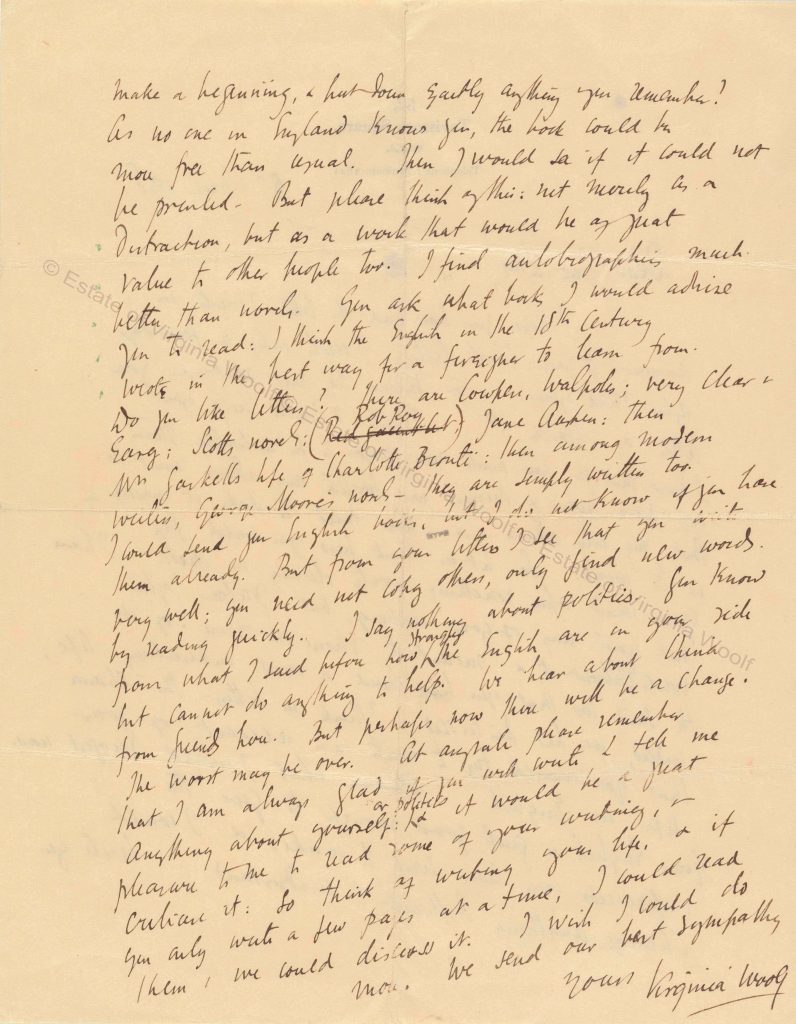 make a beginning, & put down exactly anything you remember?
As no one in England knows you, the book could be
more free than usual. Then I would see if it could not
be printed - But please think of this: not merely as a
Distraction, but as a work that would be of great
value to other people too. I find autobiographies much
better than novels. You ask what books I would advise
you to read: I think the English in the 18th Century
wrote in the best way for a foreigner to learn from.
Do you like letters? There are Cowper, Walpoles; very clear &
Easy; Scotts novels; (Rob Roy) Jane Austen: then
Mrs Gaskells life of Charlotte Bronte: then among modern
writers, George Moore's novels - they are simply written too.
I could send you English books, but I do not know if you have
them already. But from your letters I see that you write
very well; you need not copy others, only find new words
by reading quickly. I say nothing about politics. You know
from what I said before how strongly the English are on your side
but cannot do anything to help. We hear about China
from friends here. But perhaps now there will be a change.
The worst may be over. At anyrate please remember
that I am always glad if you will write & tell me
Anything about yourself: or politics & it would be a great
pleasure to me to read some of your writing, &
Criticise it: So think of writing your life, & if
you only write a few pages at a time, I could read
them & we could discuss it. I wish I could do
more. We send our best sympathy
yours Virginia Woolf
© Estate of Virginia Woolf © Estate of Virginia Woolf © Estate of Virginia Woolf